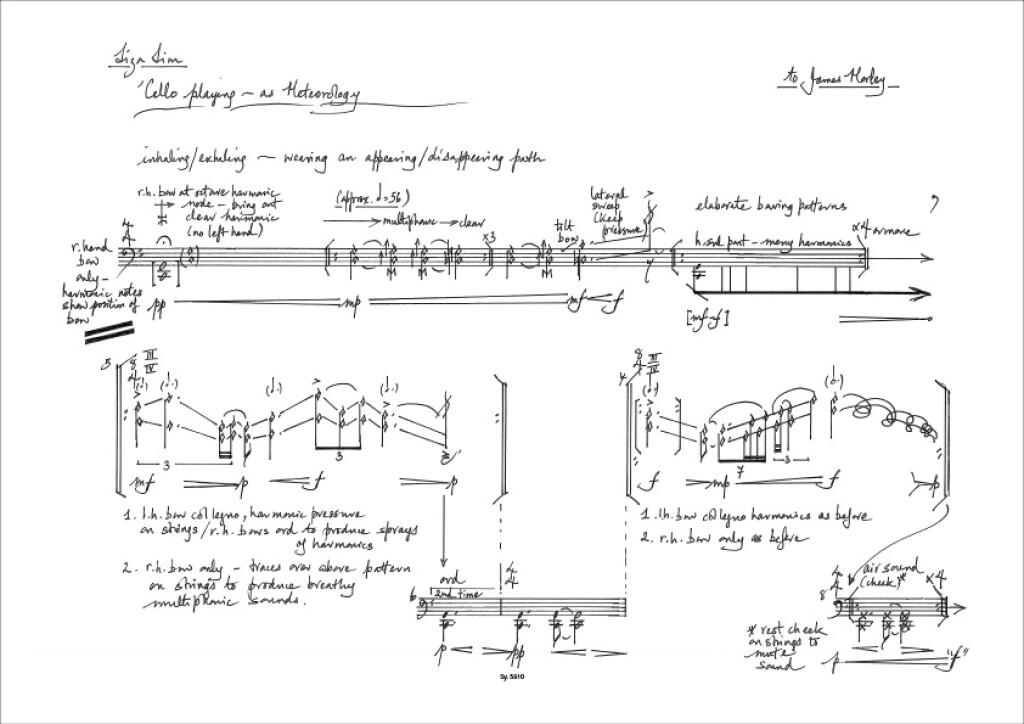 Liza Lim
to James Morley
'Cello playing – as Meteorology
inhaling/exhaling – weaving an appearing/disappearing path
r.h. bow at octave harmonic
node – bring out
clear harmonic
(no left hand)
(approx. ♩=56)
multiphonic → clear
lateral
sweep
(keep
pressure)
tilt
bow
elaborate bowing patterns
r.hand
bow
only –
harmonic notes
show position of
bow
4
4
x3
h. snd part – many harmonics
x4 or more
pp
mp
mf
f
[mf-f]
5
8
4
III
IV
3
3
mf
p
f
p
8
4
III
IV
7
3
f
mp
f
p
1. l.h. bow col legno, harmonic pressure
on strings/r.h. bows ord to produce sprays
of harmonics
2. r.h. bow only – traces over above pattern
on strings to produce breathy
multiphonic sounds.
1. l.h. bow col legno harmonics as before
2. r.h. bow only as before
ord
2nd time
4
4
6
p
pp
air sound
(cheek)*
4
4
x4
8
* rest cheek
on strings to
mute
sound
p
"f"
Sy. 5910